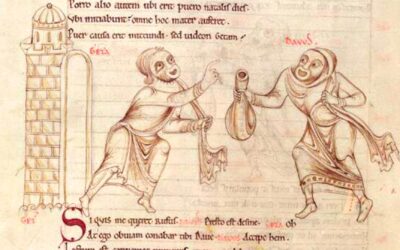 Porro alio autem ubi erit puero natalis dies.
Ubi initiabunt. omne hoc mater auferet.
Puer causa erit mittundi. sed videon Getam.
Geta Davos
GET
SIQUIS me queret Rufus. Presto est desine. Oh
At ego obviam conabar tibi Dave. Davos Accipe hem.